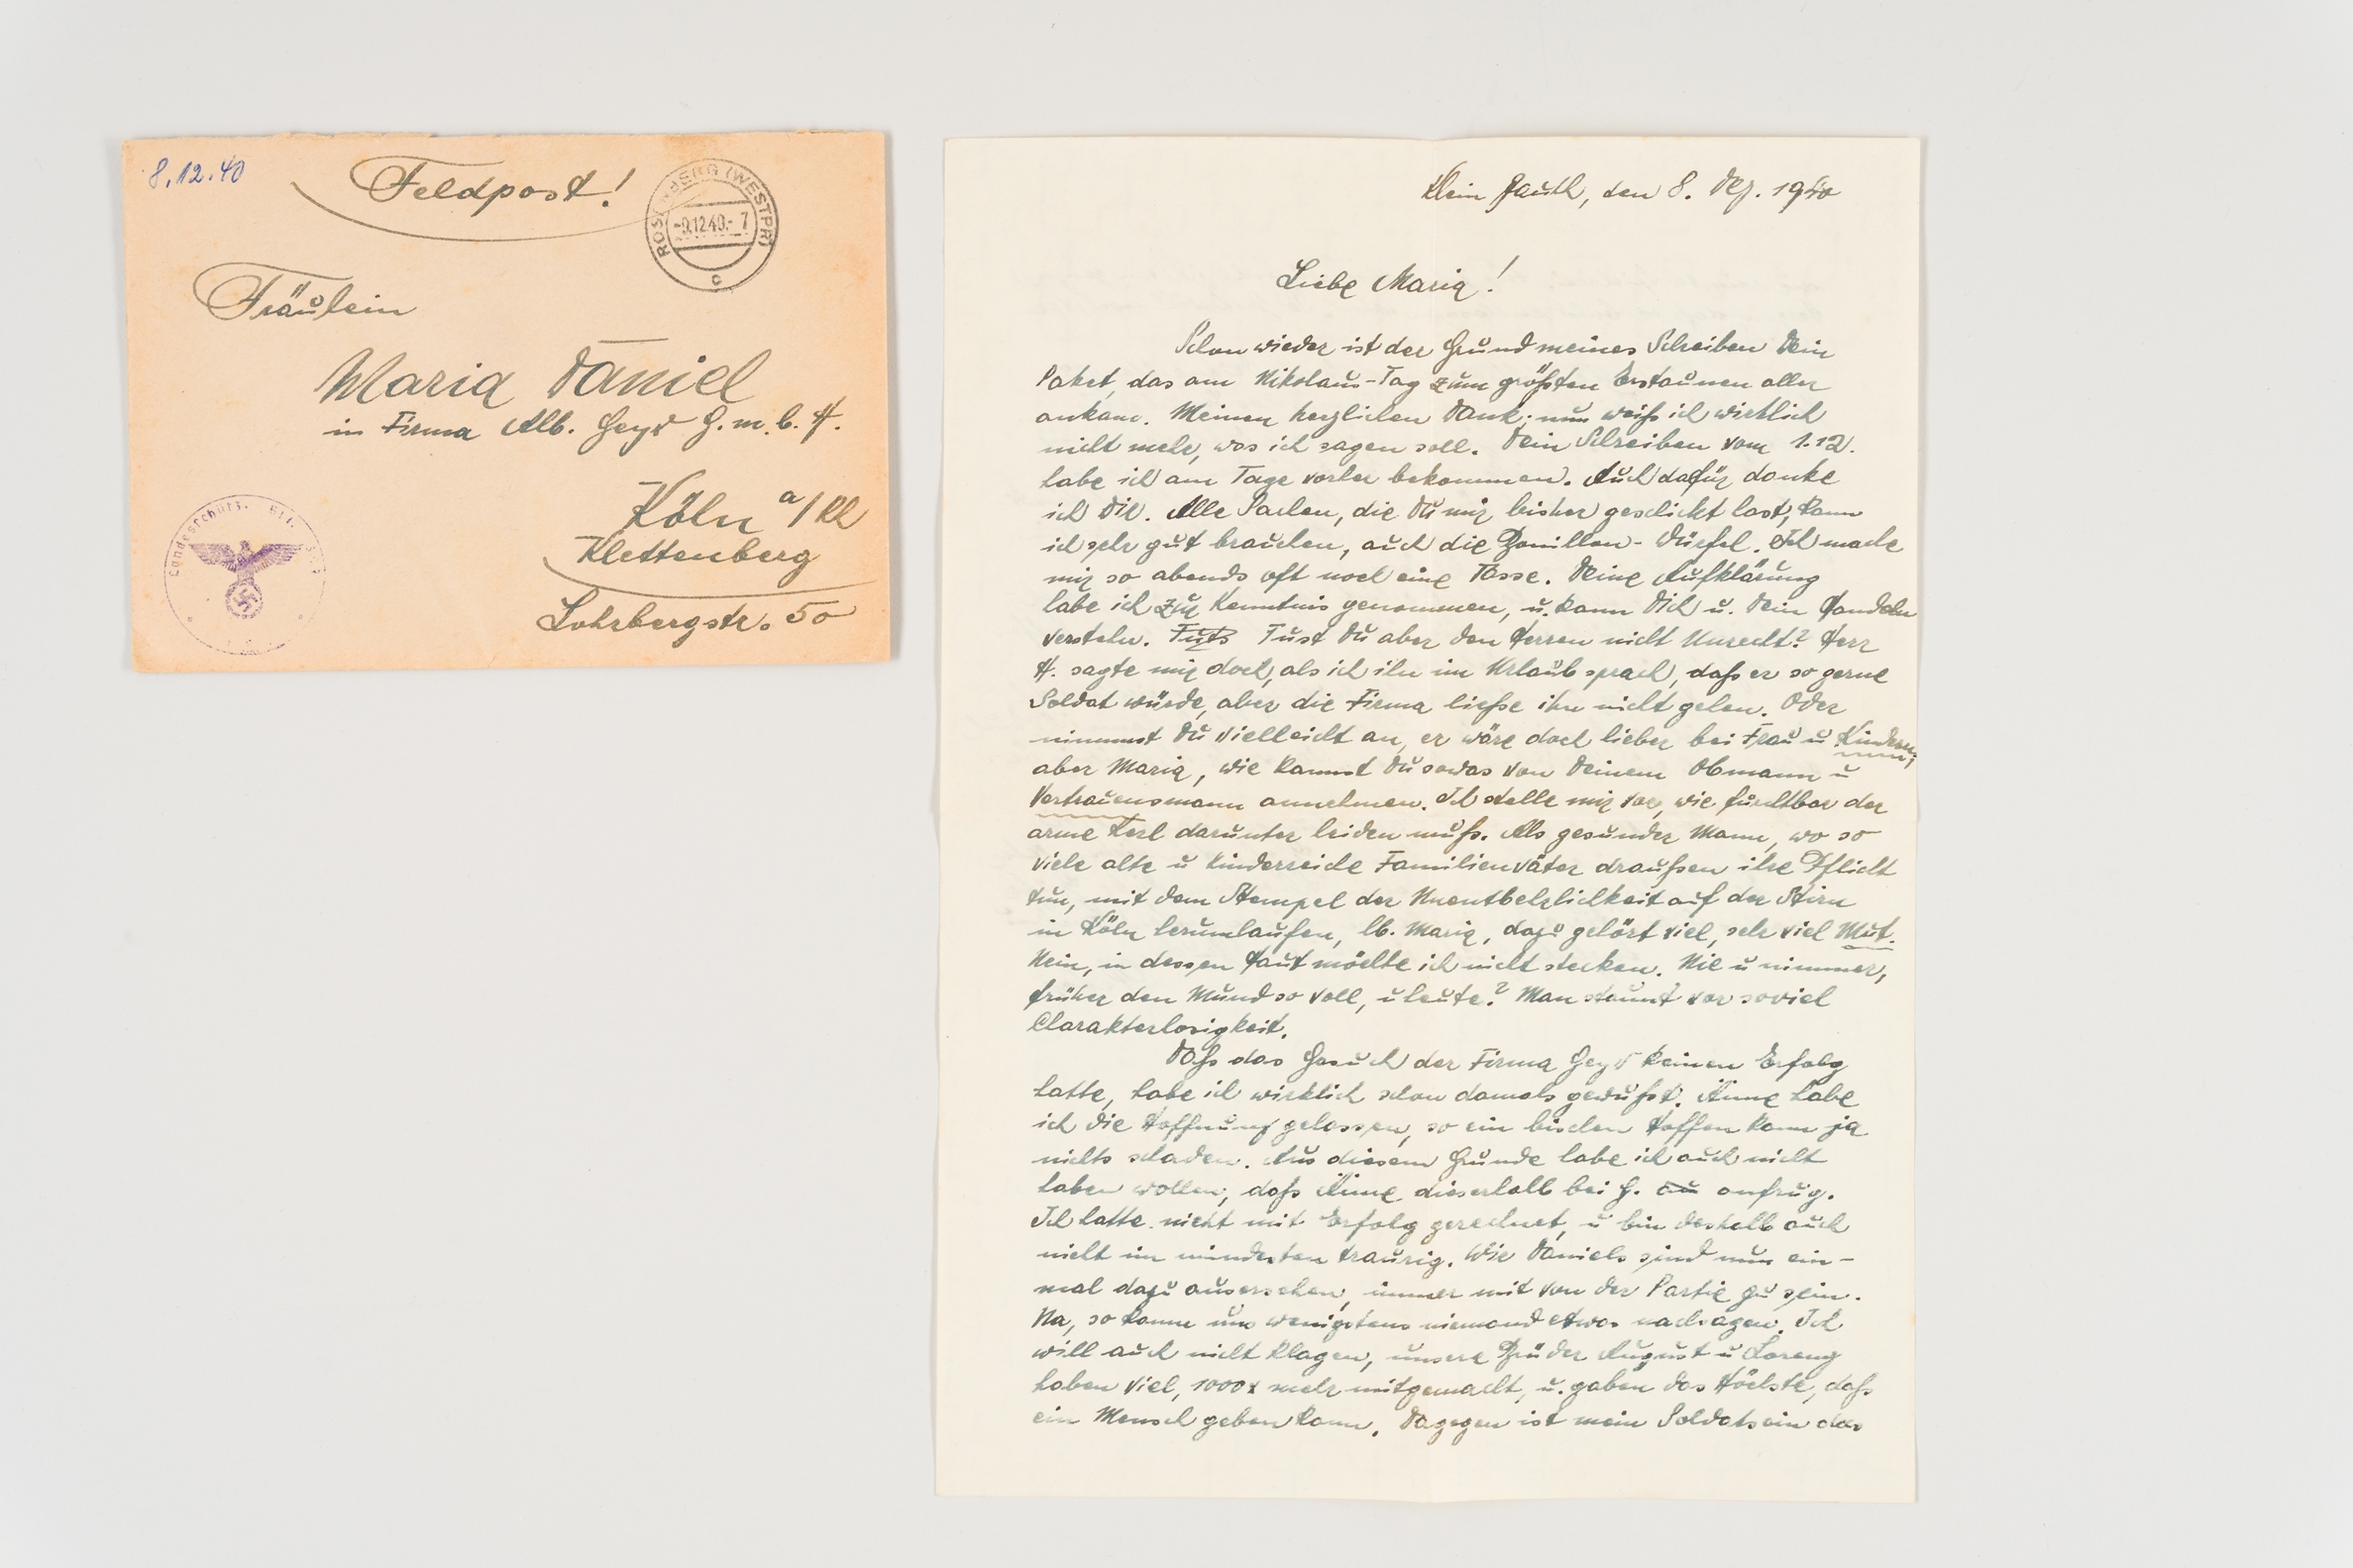 8.12.40
Feldpost!
ROSENBERG (WESTPR)
-9.12.40.-7
c
Fräulein
Maria Daniel
in Firma Alb. Geyr G.m.b.H.
Köln a/Rh
Klettenberg
Lohrbergstr. 50
Landesschütz.
Klein Jauth, den 8. Dez. 1940
Liebe Maria!
Schon wieder ist der Grund meines Schreiben Dein
Paket, das am Nikolaus-Tag zum größten Erstaunen aller
ankam. Meinen herzlichen Dank; nun weiß ich wirklich
nicht mehr, was ich sagen soll. Dein Schreiben vom 1.12.
habe ich am Tage vorher bekommen. Auch dafür danke
ich Dir. Alle Sachen, die Du mir bisher geschickt hast, kann
ich sehr gut brauchen, auch die Bouillon-Würfel. Ich mache
mir so abends oft noch eine Tasse. Deine Aufklärung
habe ich zur Kenntnis genommen, u. kann Dich u. Dein Handeln
verstehn. Tust Du aber den Herren nicht Unrecht? Herr
H. sagte mir doch, als ich ihn im Urlaub sprach, daß er so gerne
Soldat würde, aber die Firma ließe ihn nicht gehen. Oder
nimmst Du vielleicht an, er wäre doch lieber bei Frau u Kindern,
aber Maria, wie kannst Du sowas von Deinem Obmann u
Vertrauensmann annehmen. Ich stelle mir vor, wie furchtbar der
arme Kerl darunter leiden muß. Als gesunder Mann, wo so
viele alte u kinderreiche Familienväter draußen ihre Pflicht
tun, mit dem Stempel der Unentbehrlichkeit auf der Stirn
in Köln herumlaufen, lb. Maria, dazu gehört viel, sehr viel Mut.
Nein, in dessen Haut möchte ich nicht stecken. Nie u nimmer,
früher den Mund so voll, u heute? Man staunt vor soviel
Charakterlosigkeit.
Daß das Gesuch der Firma Geyr keinen Erfolg
hatte, habe ich wirklich schon damals gewußt. Änne habe
ich die Hoffnung gelassen, so ein bischen Hoffen kann ja
nichts schaden. Aus diesem Grunde habe ich auch nicht
haben wollen, daß Änne dieserhalb bei G. anfrug.
Ich hatte nicht mit Erfolg gerechnet, u bin deshalb auch
nicht im mindesten traurig. Wir Daniels sind nun ein-
mal dazu ausersehen, immer mit von der Partie zu sein.
Na, so kann uns wenigstens niemand etwas nachsagen. Ich
will auch nicht klagen, unsere Brüder August u Lorenz
haben viel, 1000x mehr mitgemacht, u. gaben das Höchste, daß
ein Mensch geben kann. Dagegen ist mein Soldatsein das